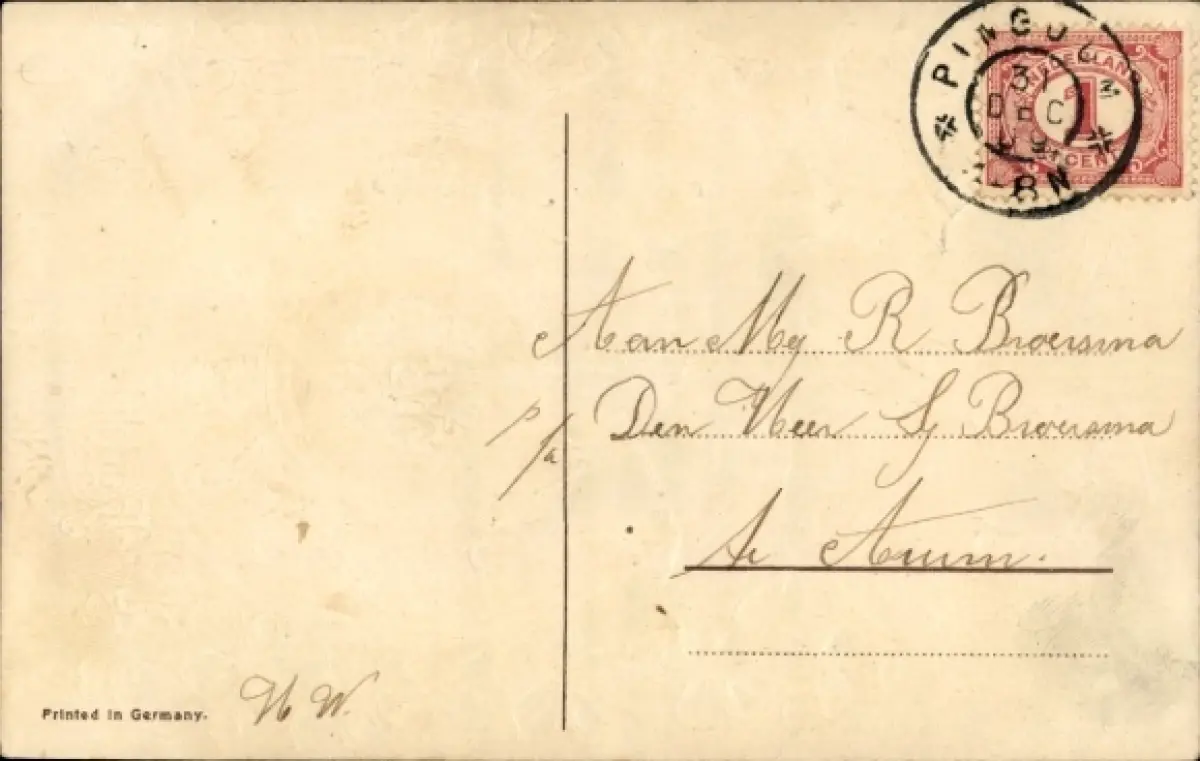 PINGJUM
31
DEC
8-N
NEDERLAND
1
CENT
Aan Mej R Broersma
p/a Den Heer Sj Broersma
te Arum.
H W.
Printed in Germany.